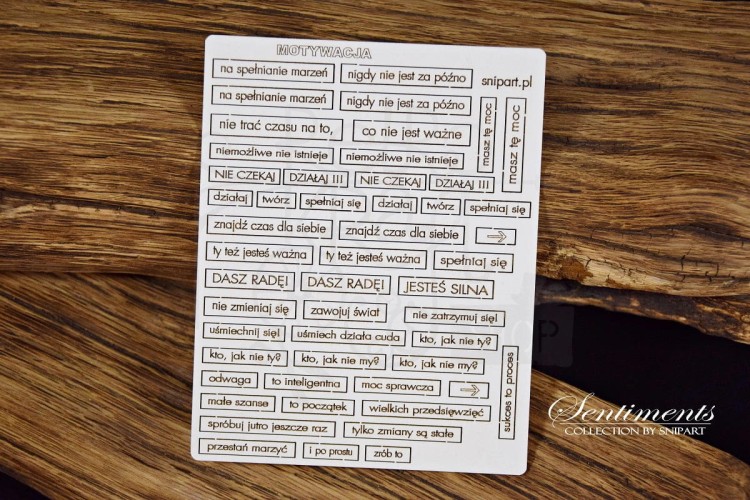 MOTYWACJA
na spełnianie marzeń nigdy nie jest za późno snipart.pl
na spełnianie marzeń nigdy nie jest za późno
masz tę moc
masz tę moc
nie trać czasu na to, co nie jest ważne
niemożliwe nie istnieje niemożliwe nie istnieje
NIE CZEKAJ DZIAŁAJ !!! NIE CZEKAJ DZIAŁAJ !!!
działaj twórz spełniaj się działaj twórz spełniaj się
znajdź czas dla siebie znajdź czas dla siebie
ty też jesteś ważna ty też jesteś ważna spełniaj się
DASZ RADĘ! DASZ RADĘ! JESTEŚ SILNA
nie zmieniaj się zawojuj świat nie zatrzymuj się!
uśmiechnij się! uśmiech działa cuda kto, jak nie ty?
kto, jak nie ty? kto, jak nie my? kto, jak nie my?
sukces to proces
odwaga to inteligentna moc sprawcza
małe szanse to początek wielkich przedsięwzięć
spróbuj jutro jeszcze raz tylko zmiany są stałe
przestań marzyć i po prostu zrób to
Sentiments
COLLECTION BY SNIPART